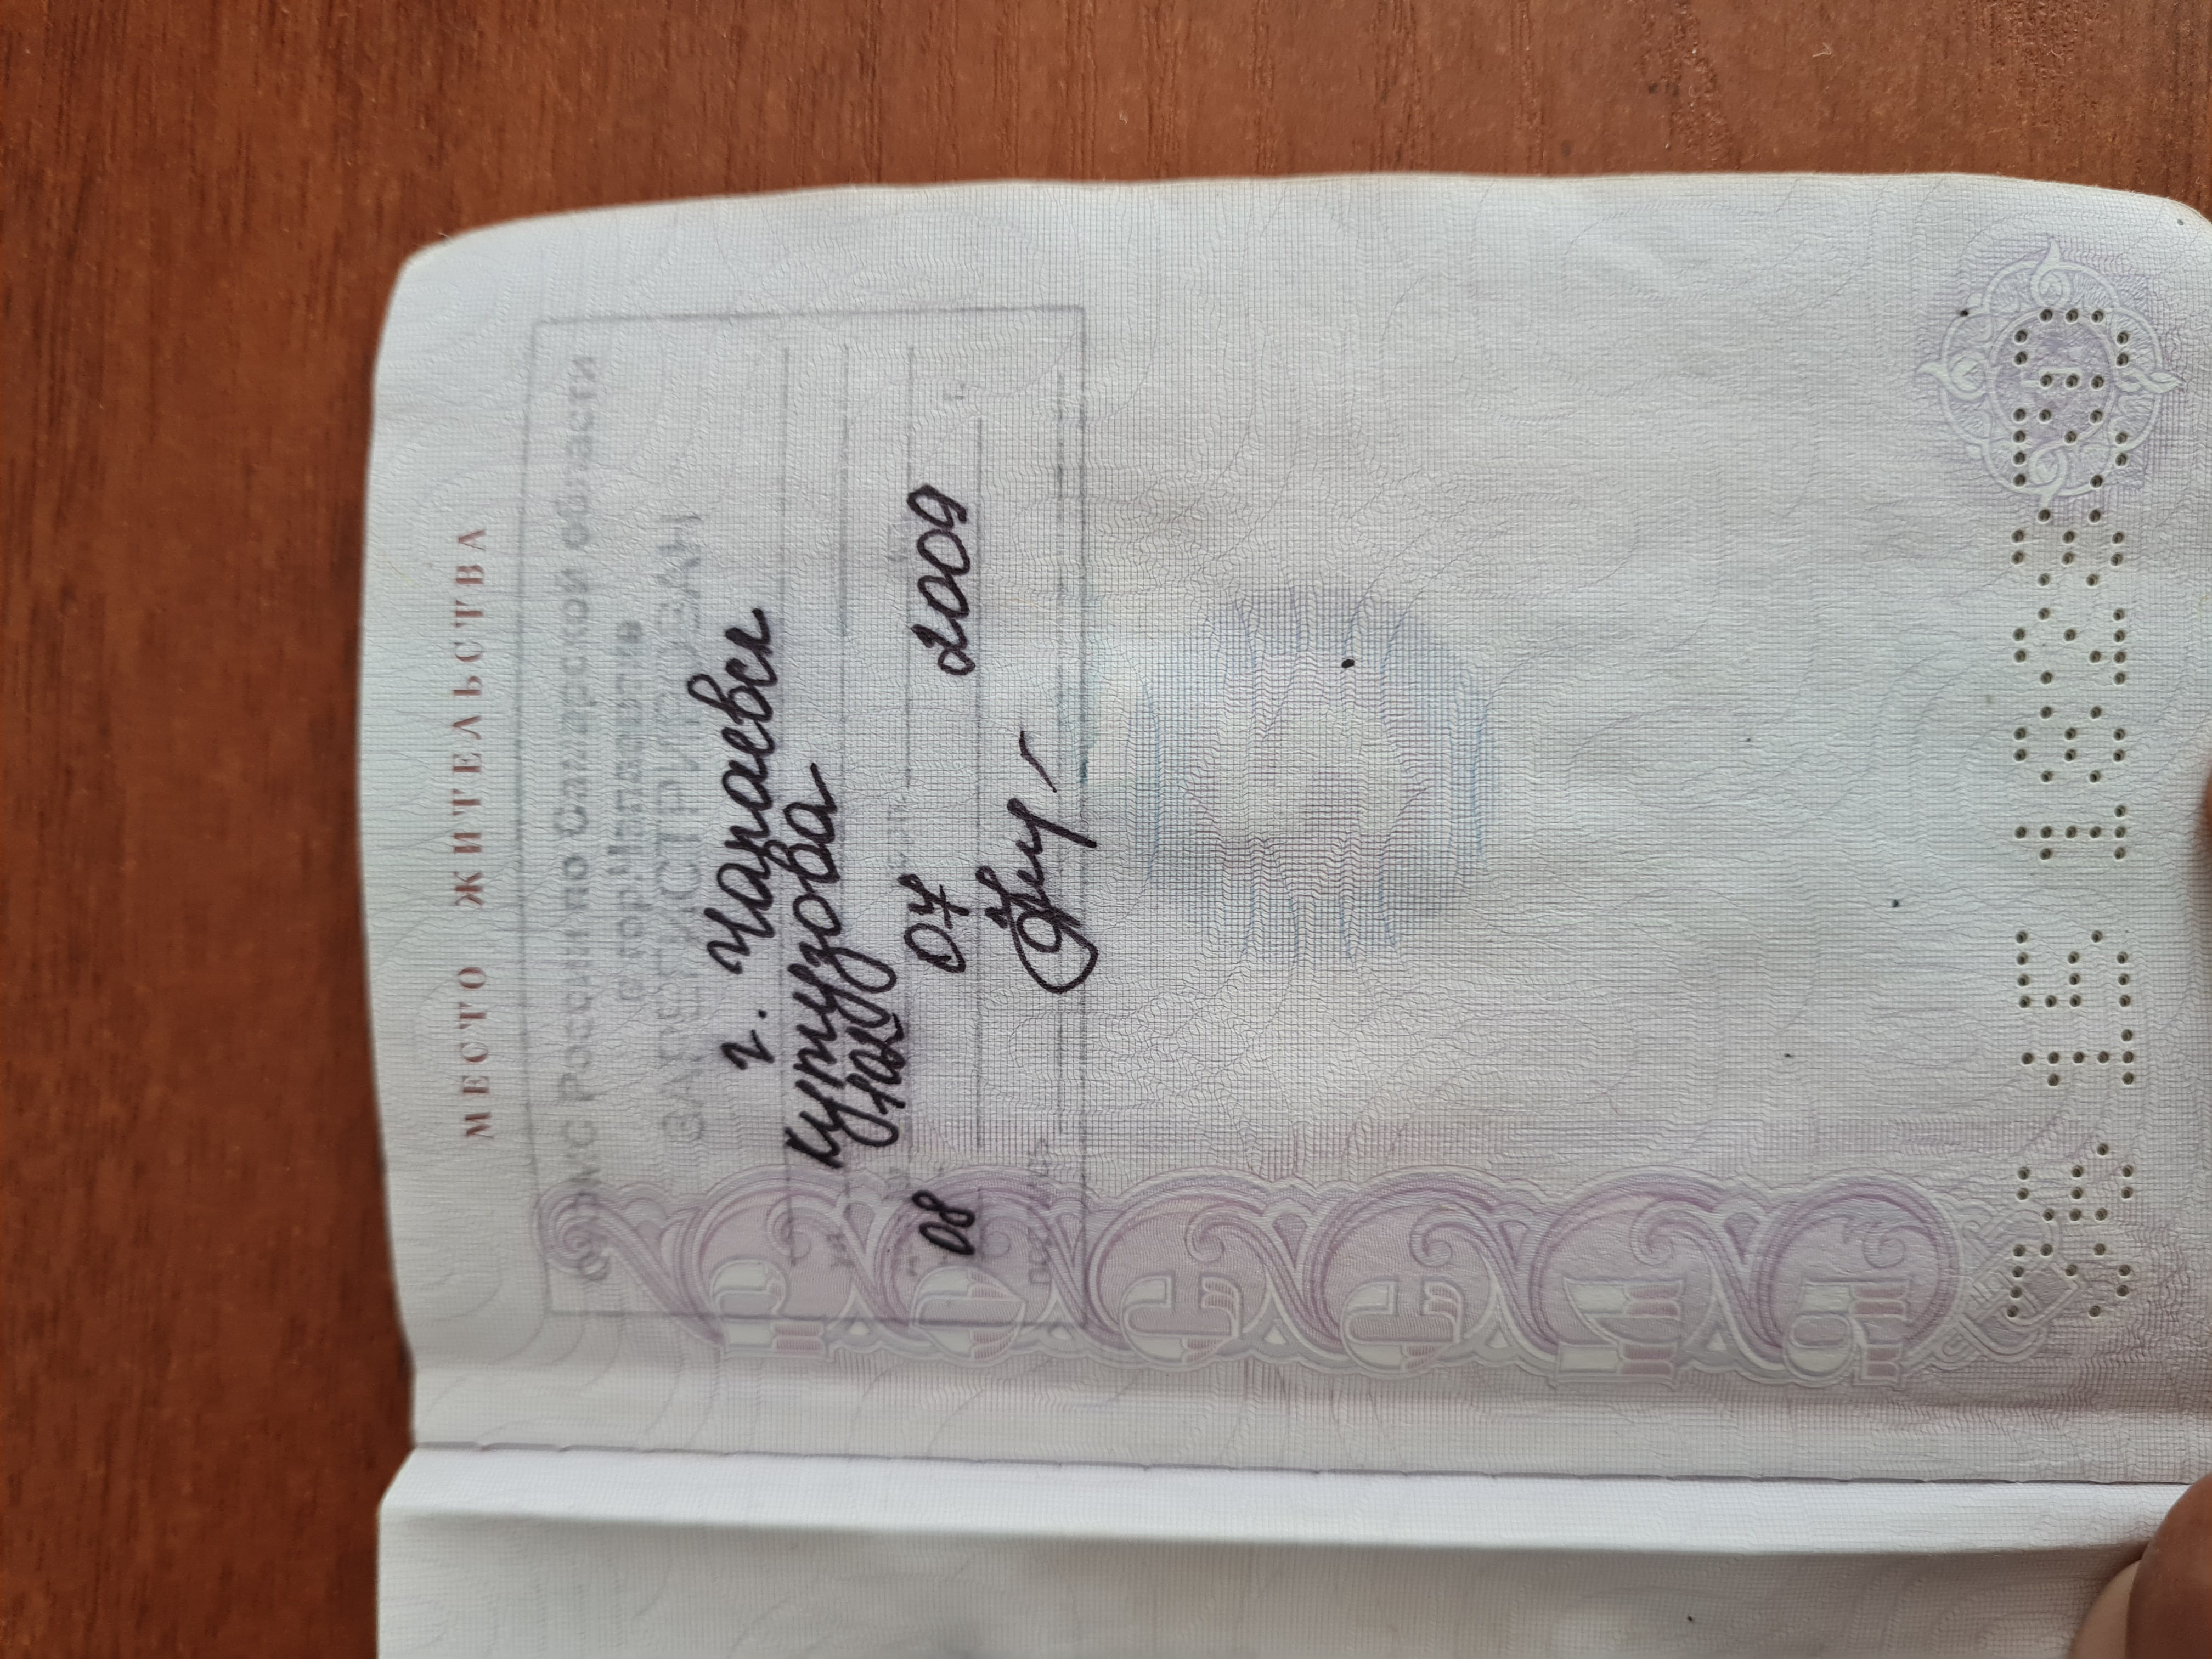 МЕСТО ЖИТЕЛЬСТВА
ОУФМС России по Самарской области
в гор.Чапаевске
ЗАРЕГИСТРИРОВАН
г. Чапаевск
Кутузова
08 04 2009 г.
РОССИЯ